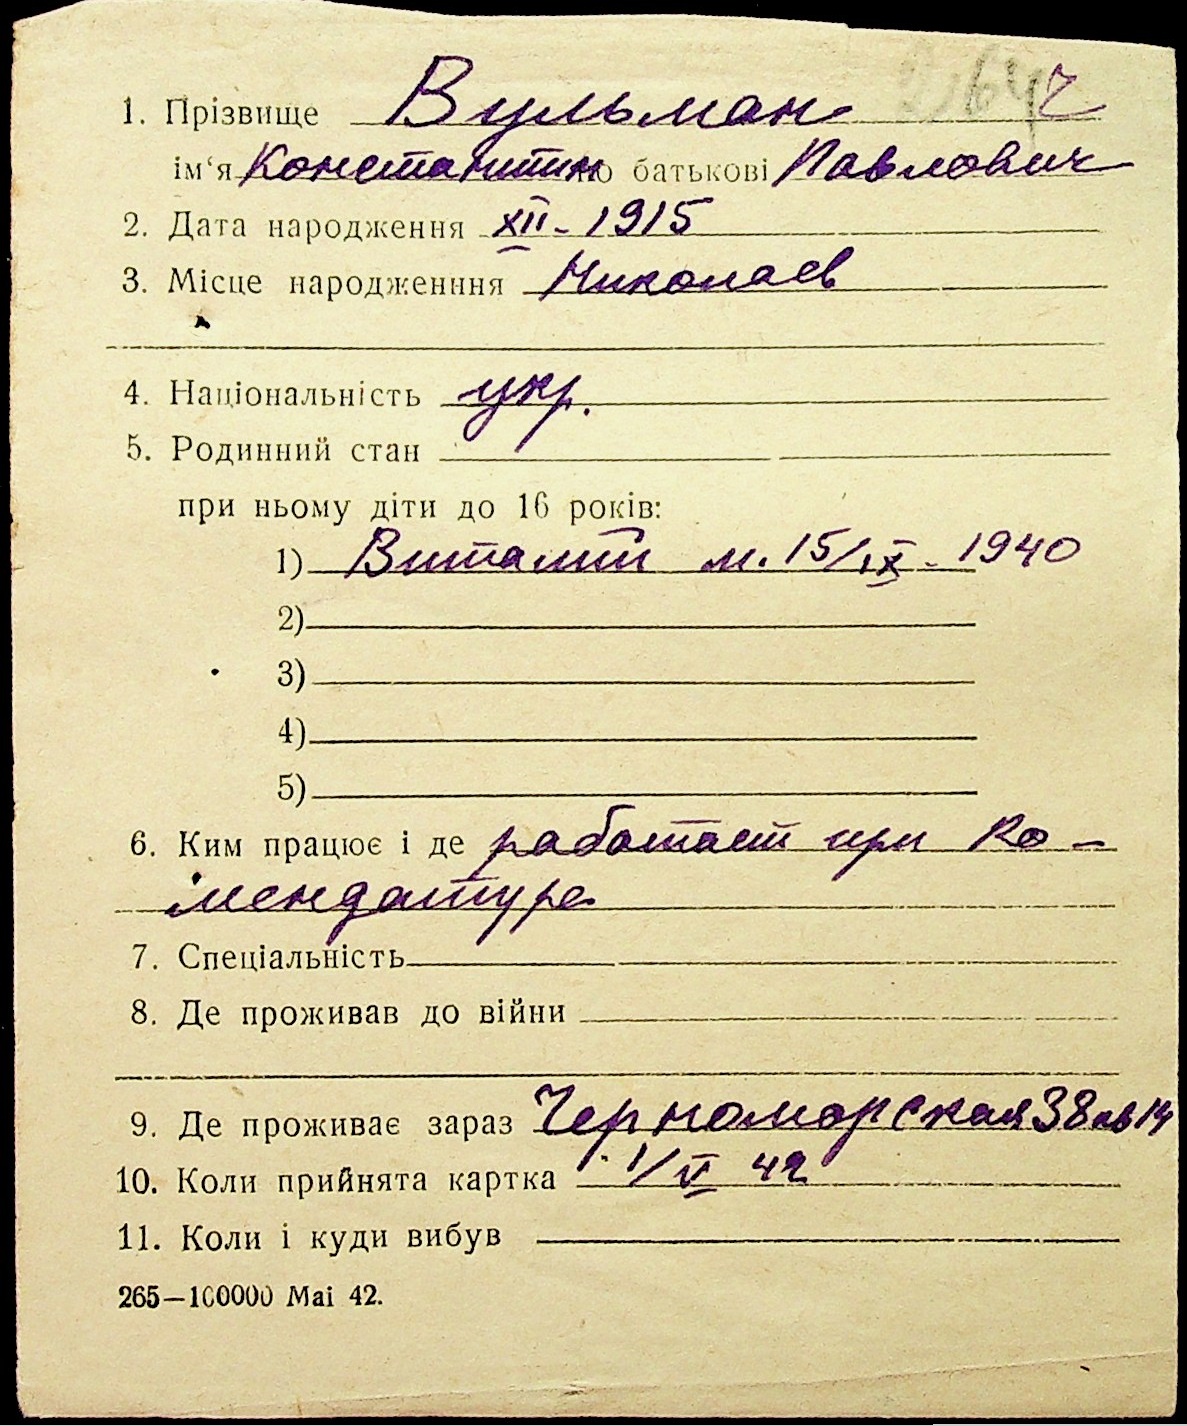 1. Прізвище Вульман Ч
ім‘я Константин по батькові Павлович
2. Дата народження XII - 1915
3. Місце народженння Николаев
4. Національність укр.
5. Родинний стан
при ньому діти до 16 років:
1) Виталий м. 15/IX - 1940
2)
3)
4)
5)
6. Ким працює і де работает при ко-
мендатуре
7. Спеціальність
8. Де проживав до війни
9. Де проживає зараз Черноморская 38 кв 14
10. Коли прийнята картка 1/VI 42
11. Коли і куди вибув
265—100000 Mai 42.